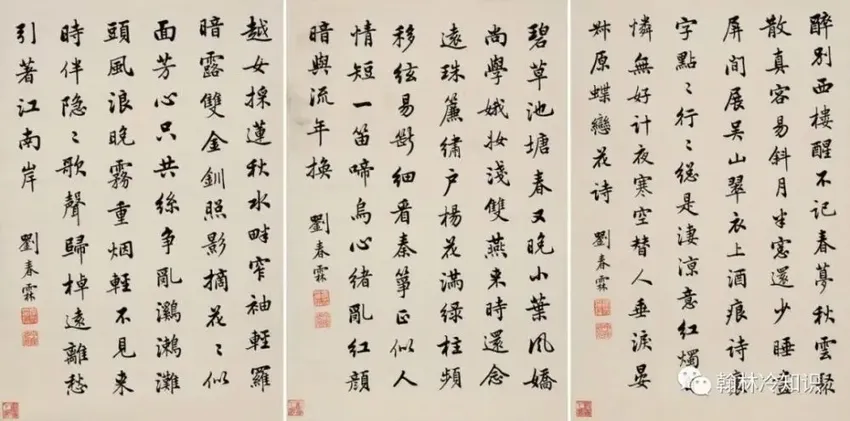 醉別西樓醒不記春夢秋雲聚
散真容易斜月半窓還少睡畫
屏間展吳山翠衣上酒痕詩裏
字點〻行〻總是淒涼意紅燭
憐無好計夜寒空替人垂淚晏
叔原蝶戀花詩 劉春霖
碧草池塘春又晚小葉風嬌
尚學娥妝淺雙燕來時還念
遠珠簾繡户楊花滿綠柱頻
移絃易斷細看秦箏正似人
情短一笛啼烏心緒亂紅顏
暗與流年換 劉春霖
越女採蓮秋水畔窄袖輕羅
暗露雙金釧照影摘花〻似
面芳心只共絲争亂鸂鶒灘
頭風浪晚霧重烟輕不見來
時伴隐〻歌聲歸棹遠離愁
引著江南岸 劉春霖
翰林冷知识